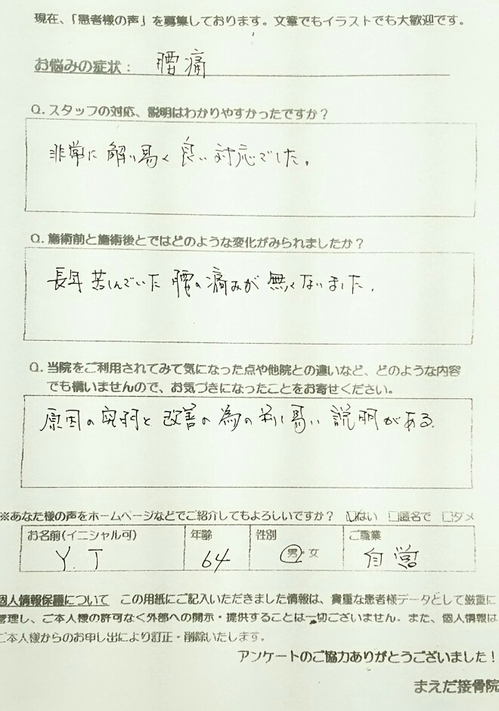 現在、「患者様の声」を募集しております。文章でもイラストでも大歓迎です。
お悩みの症状： 腰痛
Q. スタッフの対応、説明はわかりやすかったですか？
非常に解り易く良い対応でした。
Q. 施術前と施術後とではどのような変化がみられましたか？
長年苦しんでいた腰の痛みが無くないました.
Q. 当院をご利用されてみて気になった点や他院との違いなど、どのような内容
でも構いませんので、お気づきになったことをお寄せください。
原因の究明と改善の為の判り易い説明がある.
※あなた様の声をホームページなどでご紹介してもよろしいですか？ ☑はい □匿名で □ダメ
お名前(イニシャル可) 年齢 性別 ご職業
Y. T 64 男・女 自営
個人情報保護について この用紙にご記入いただきました情報は、貴重な患者様データとして厳重に
管理し、ご本人様の許可なく外部への開示・提供することは一切ございません。また、個人情報は
ご本人様からのお申し出により訂正・削除いたします。
アンケートのご協力ありがとうございました！
まえだ接骨院